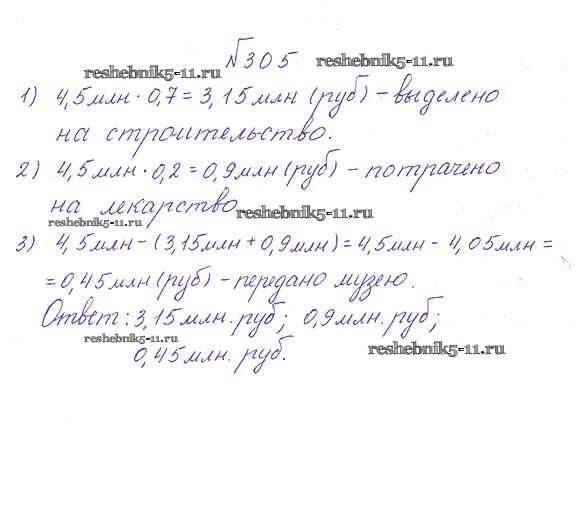 №305
reshebnik5-11.ru
reshebnik5-11.ru
1) 4,5млн · 0,7 = 3,15млн (руб) – выделено
на строительство.
2) 4,5млн · 0,2 = 0,9млн (руб) – потрачено
на лекарство
reshebnik5-11.ru
reshebnik5-11.ru
3) 4,5млн – (3,15млн + 0,9млн) = 4,5млн – 4,05млн =
= 0,45млн (руб) – передано музею.
Ответ: 3,15млн. руб; 0,9млн. руб;
reshebnik5-11.ru
0,45млн. руб.
reshebnik5-11.ru